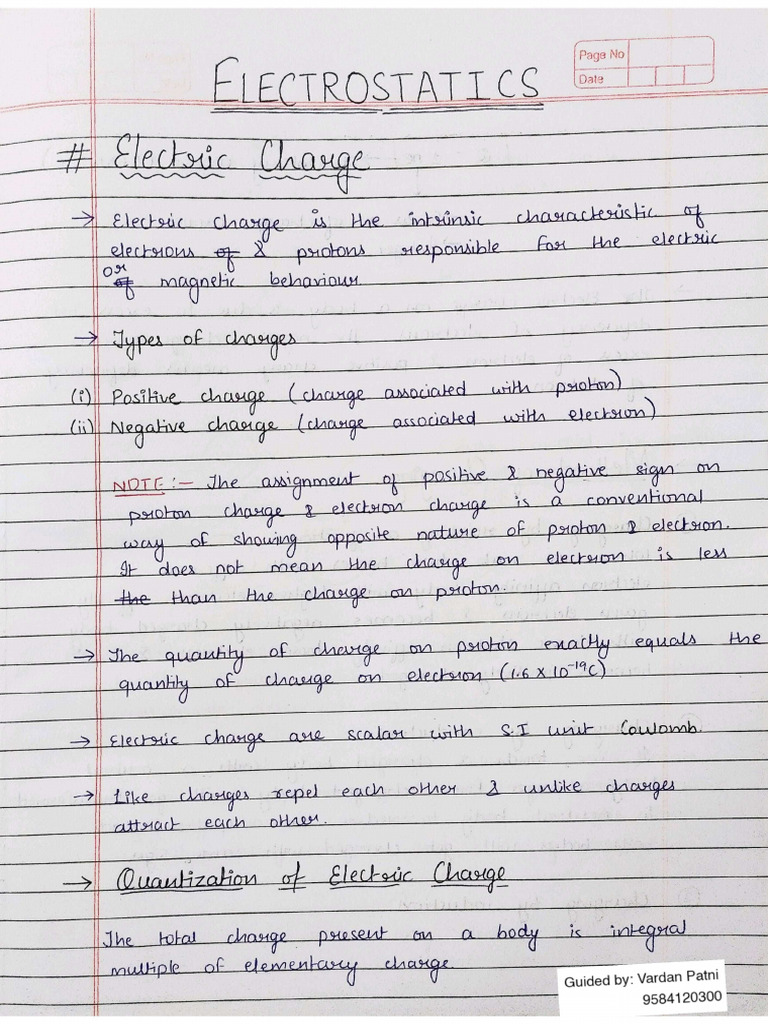 Page No
Date
ELECTROSTATICS
# Electric Charge
→ Electric charge is the intrinsic characteristic of
electrons of & protons responsible for the electric
or
of magnetic behaviour.
→ Types of charges
(i) Positive charge (charge associated with proton)
(ii) Negative charge (charge associated with electron)
NOTE :- The assignment of positive & negative sign on
proton charge & electron charge is a conventional
way of showing opposite nature of proton & electron.
It does not mean the charge on electron is less
the than the charge on proton.
→ The quantity of charge on proton exactly equals the
quantity of charge on electron (1.6 X 10⁻¹⁹C)
→ Electric charge are scalar with S.I unit Coulomb.
→ Like charges repel each other & unlike charges
attract each other.
→ Quantization of Electric Charge
The total charge present on a body is integral
multiple of elementary charge.
Guided by: Vardan Patni
9584120300